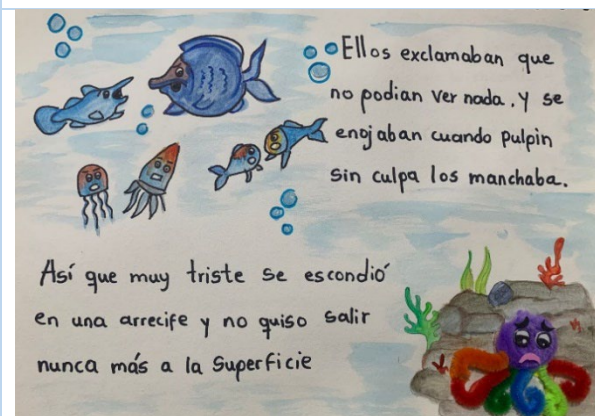 Ellos exclamaban que
no podian ver nada. y se
enojaban cuando pulpin
sin culpa los manchaba.
Así que muy triste se escondió
en una arrecife y no quiso salir
nunca más a la Superficie